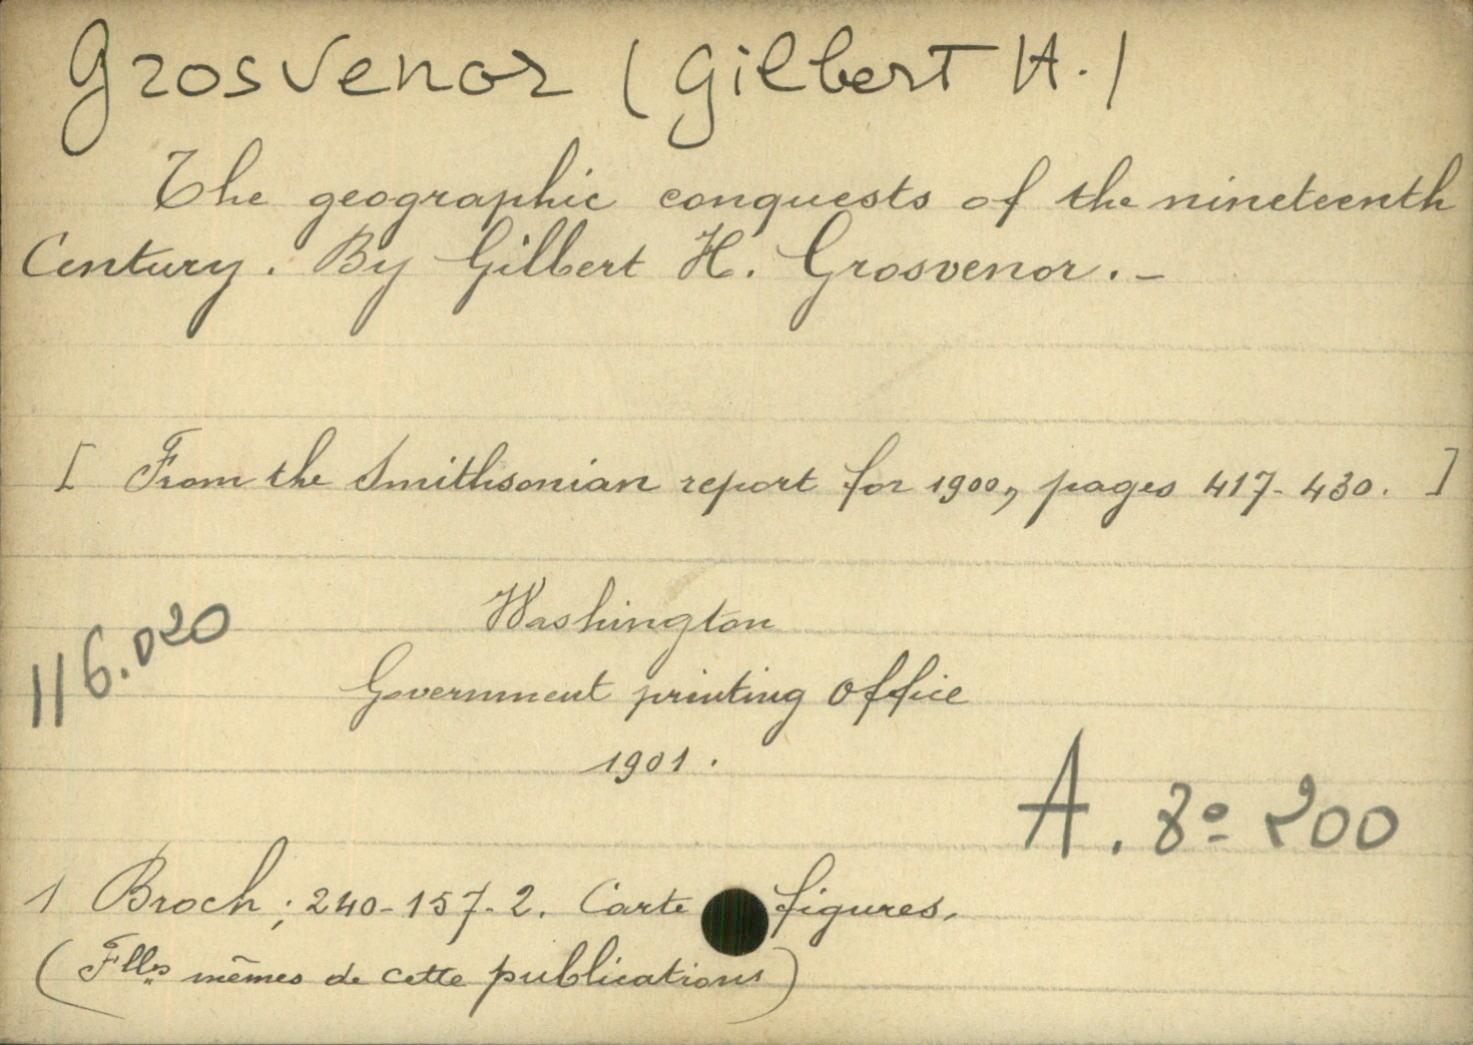 Grosvenor (Gilbert H.)
The geographic conquests of the nineteenth
Century. By Gilbert H. Grosvenor. -
[ From the Smithsonian report for 1900, pages 417-430. ]
116.020
Washington
Government printing Office
1901.
A. 8º 200
1 Broch; 240-157-2. Carte figures.
(Flles mêmes de cette publications)